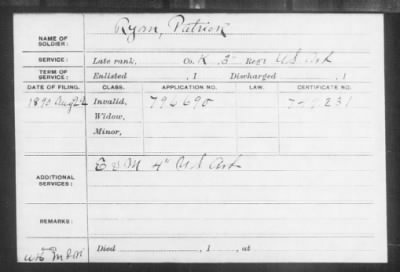 NAME OF SOLDIER: Ryan, Patrick
SERVICE: Late rank, Co. K. 3" Reg't U.S. Art
TERM OF SERVICE: Enlisted , 1 Discharged , 1
DATE OF FILING. CLASS. APPLICATION NO. LAW. CERTIFICATE NO.
1890 Aug Invalid, 796690 231
Widow,
Minor,
ADDITIONAL SERVICES: E & M 4" U.S. Art
REMARKS:
Died , 1 , at